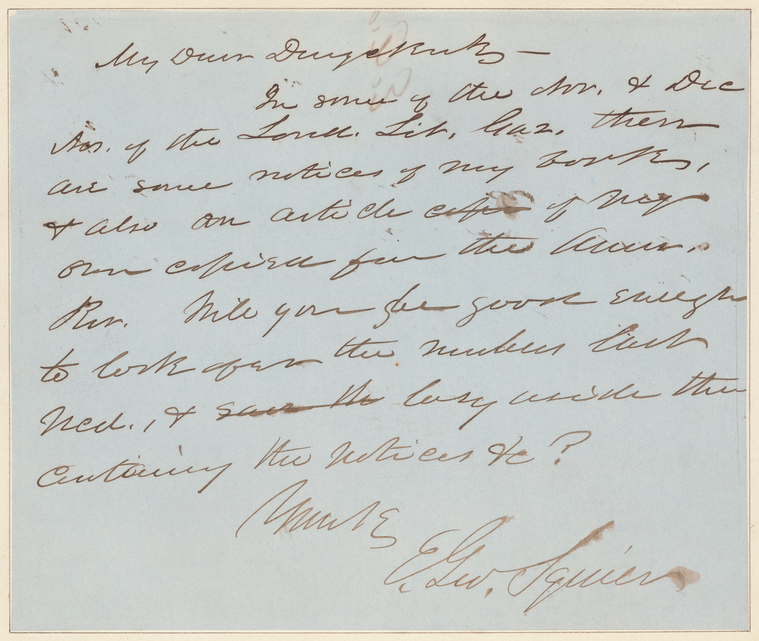 My Dear Duyckinck —
In some of the Nov. & Dec
Nos. of the Lond. Lit. Gaz. there
are some notices of my books,
& also an article copi of my
own copied from the Amer.
Rev. Will you be good enough
to look over the numbers last
recd., & save th lay aside the
containing the notices &c?
Yours
E. Geo. Squier